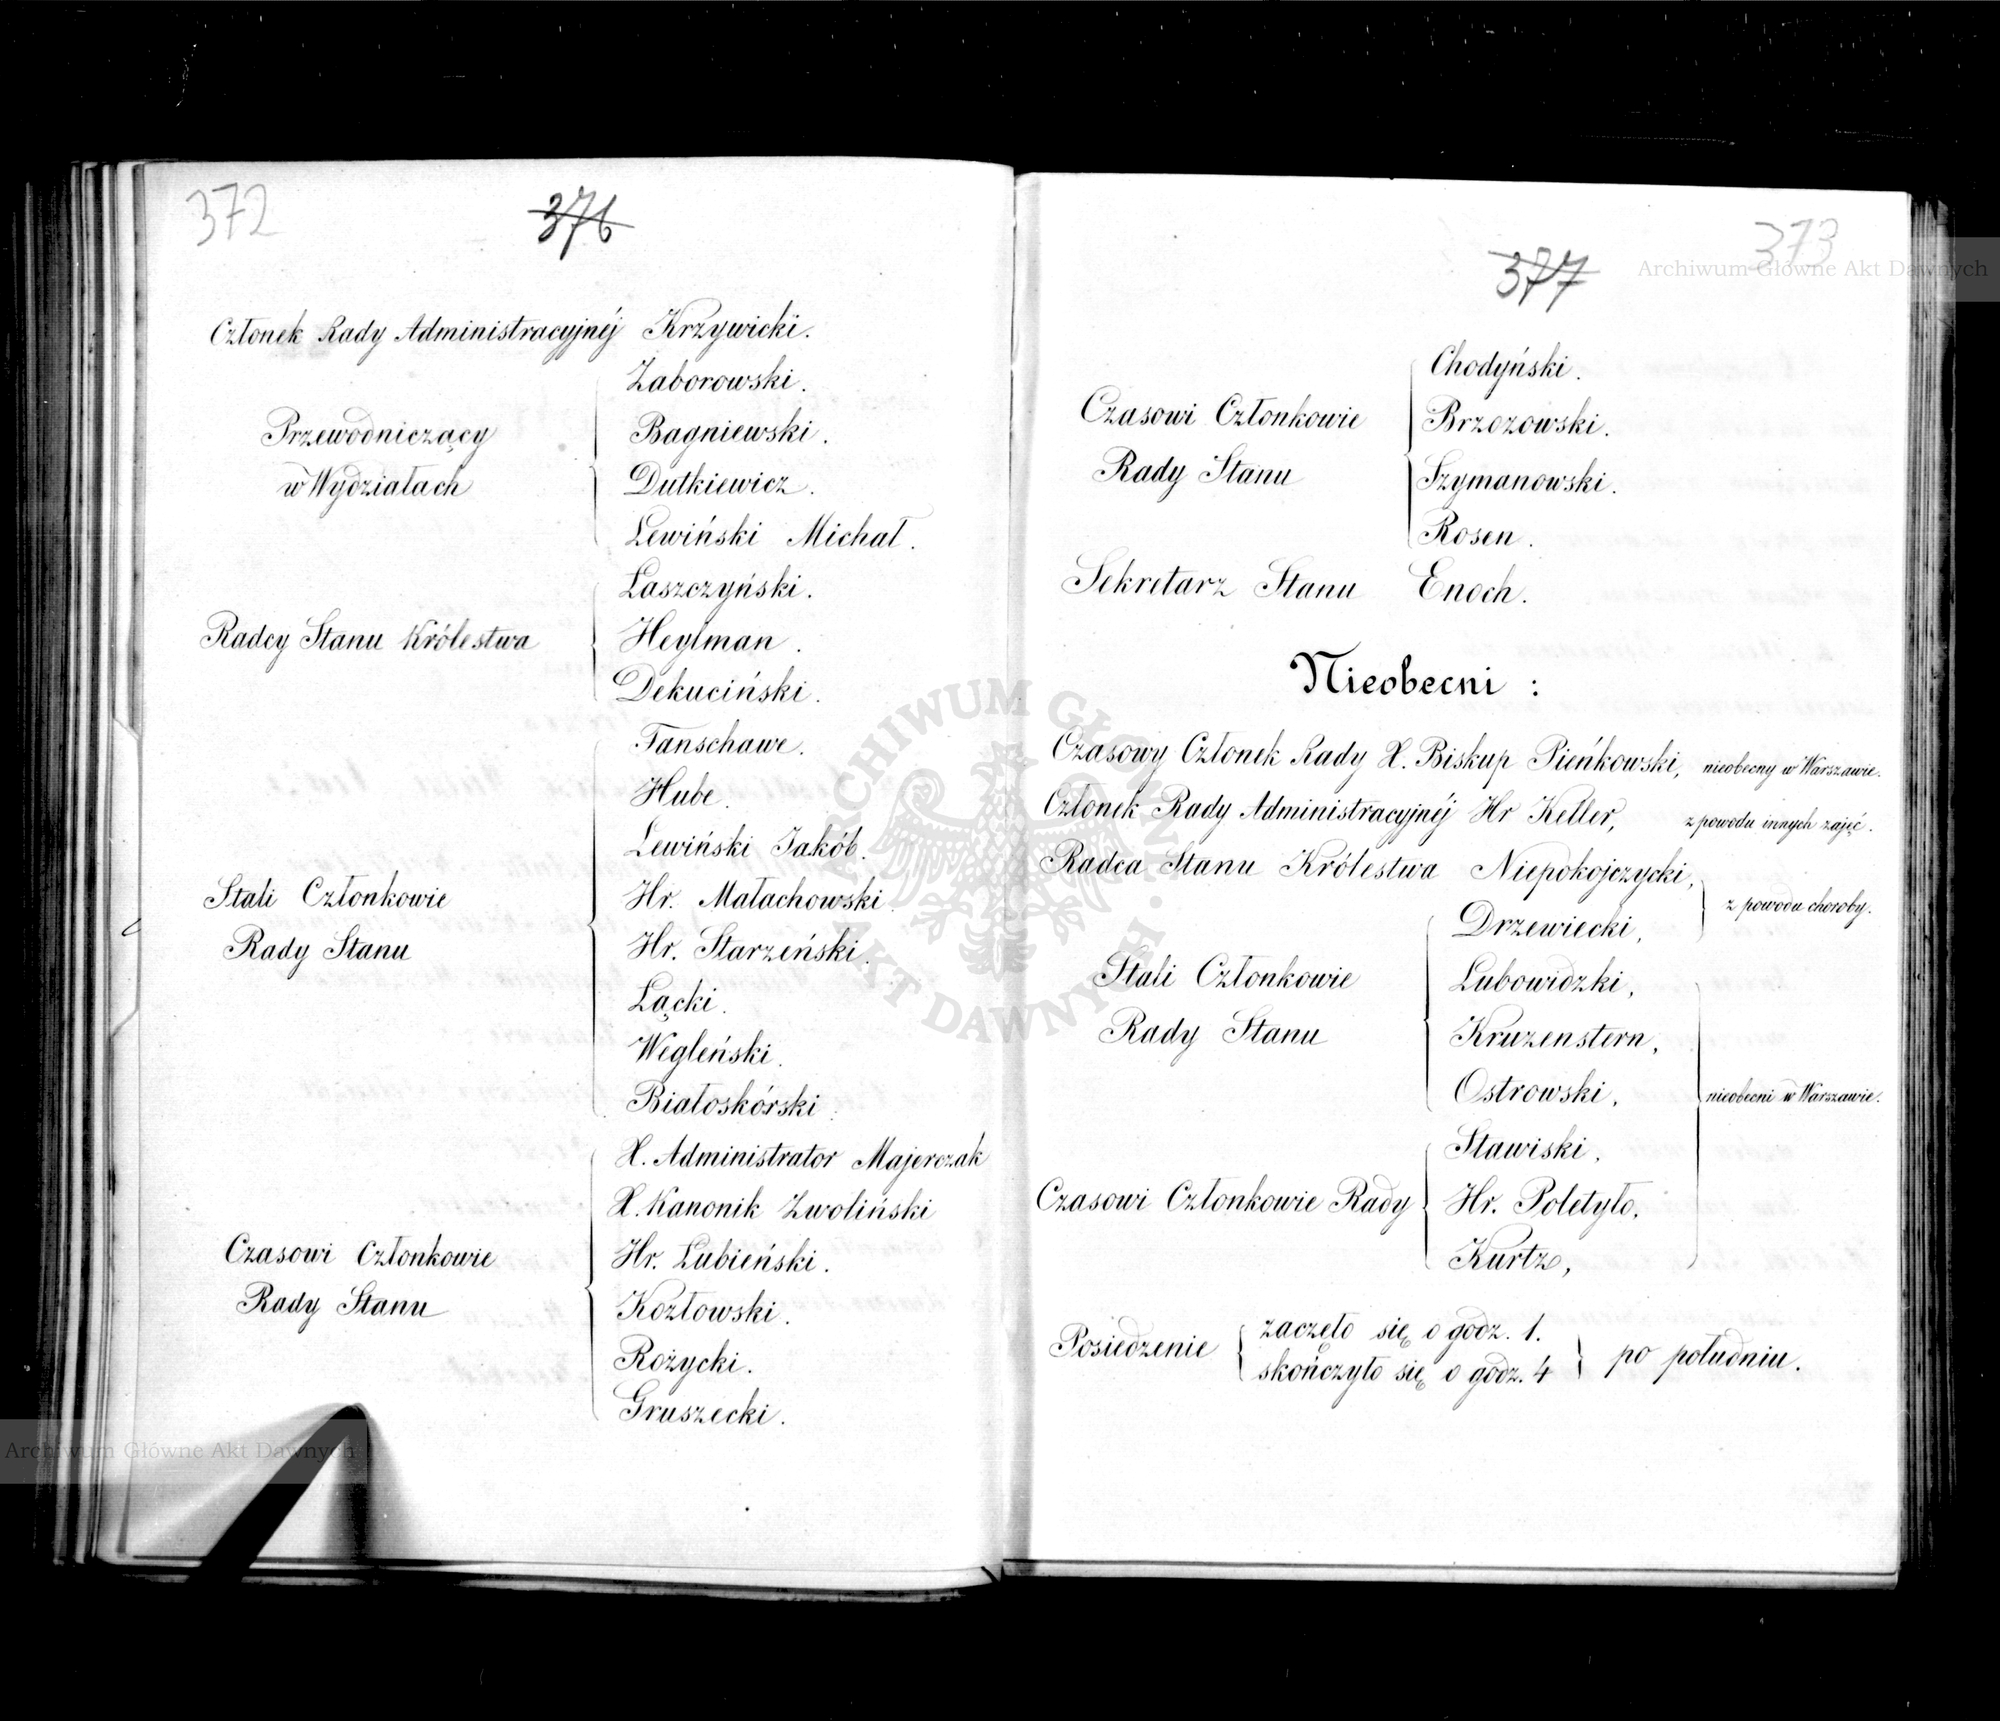 372
376
Członek Rady Administracyjnéj Krzywicki.
Przewodniczący
w Wydziałach
Zaborowski.
Bagniewski.
Dutkiewicz.
Lewiński Michał.
Radcy Stanu Królestwa
Laszczyński.
Heylman.
Dekuciński.
Stali Członkowie
Rady Stanu
Fanschawe.
Hube.
Lewiński Jakób.
Hr. Małachowski.
Hr. Starzeński.
Łącki.
Węgleński.
Białoskórski.
Czasowi Członkowie
Rady Stanu
X. Administrator Majerczak
X. Kanonik Zwoliński
Hr. Łubieński.
Kozłowski.
Rożycki.
Gruszecki.
373
377
Czasowi Członkowie
Rady Stanu
Chodyński.
Brzozowski.
Szymanowski.
Rosen.
Sekretarz Stanu Enoch.
Nieobecni :
Czasowy Członek Rady X. Biskup Pieńkowski, nieobecny w Warszawie.
Członek Rady Administracyjnéj Hr Keller, z powodu innych zajęć.
Radca Stanu Królestwa Niepokojczycki,
z powodu choroby.
Stali Członkowie
Rady Stanu
Drzewiecki,
Lubowidzki,
Kruzenstern,
Ostrowski,
nieobecni w Warszawie.
Czasowi Członkowie Rady
Stawiski,
Hr. Poletyło,
Kurtz,
Posiedzenie
zaczęło się o godz. 1.
skończyło się o godz. 4
po południu.
Archiwum Główne Akt Dawnych
ARCHIWUM GŁÓWNE AKT DAWNYCH
Archiwum Główne Akt Dawnych